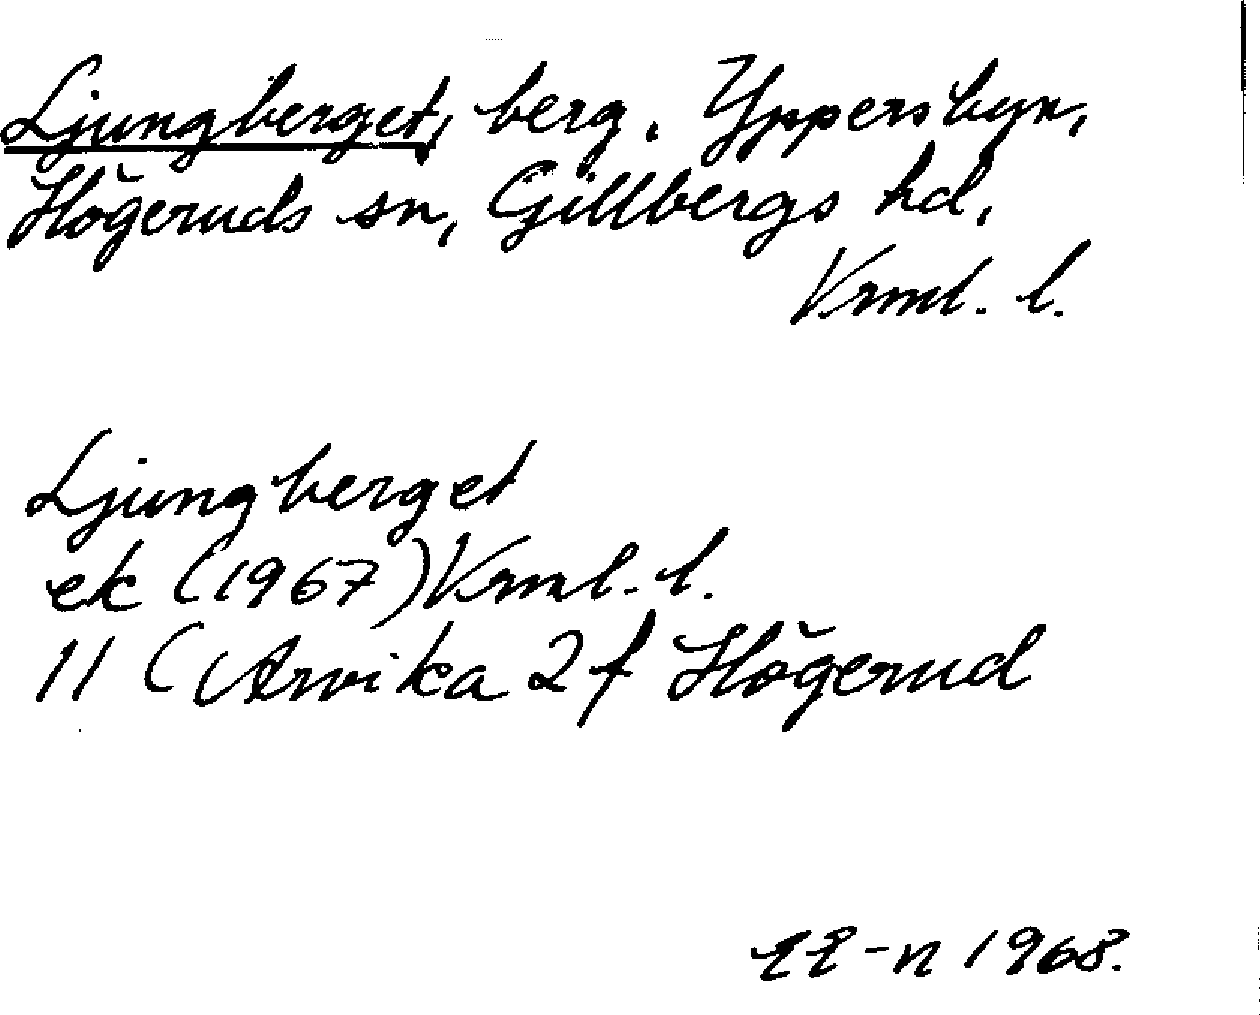 Ljungberget, berg. Yppersbyn,
Högeruds sn, Gillbergs hd,
Vrml. l.
Ljungberget
ek (1967) Vrml. l.
11 (Arvika 2f Högerud
EE-n 1968.